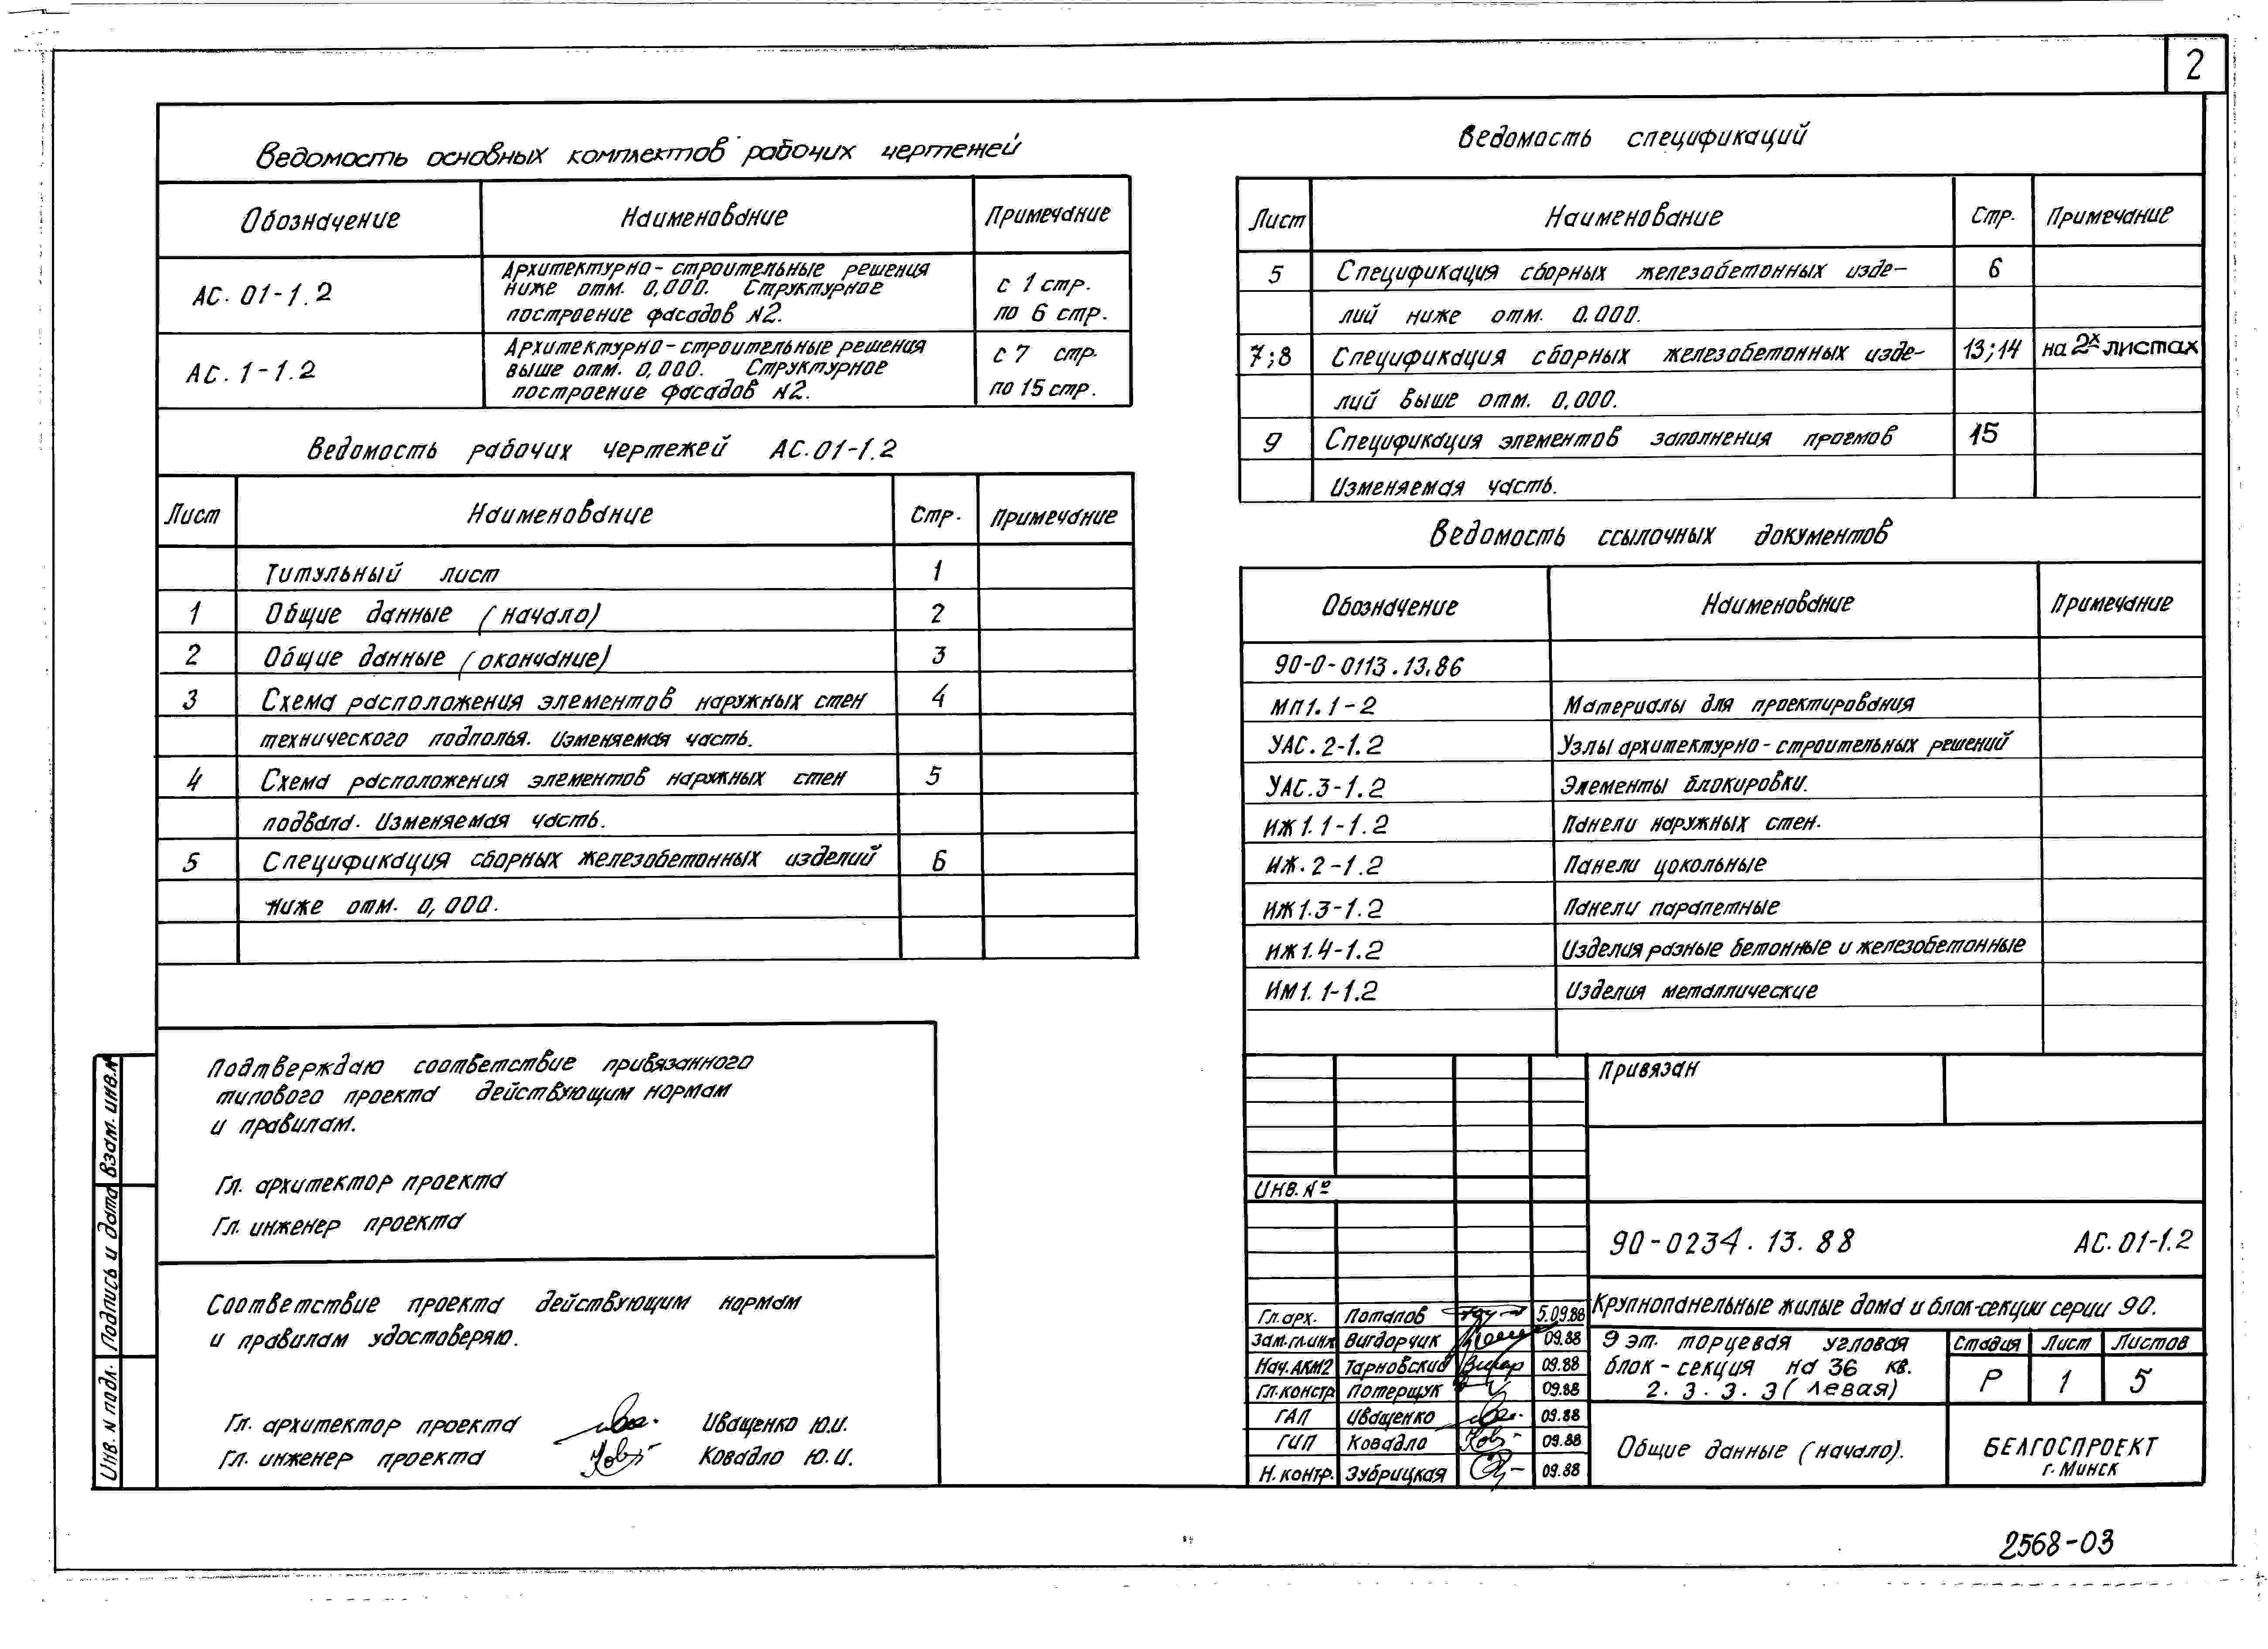 2
Ведомость основных комплектов рабочих чертежей
Обозначение Наименование Примечание
АС. 01-1.2 Архитектурно-строительные решения ниже отм. 0,000. Структурное построение фасадов N2. с 1 стр. по 6 стр.
АС. 1-1.2 Архитектурно-строительные решения выше отм. 0,000. Структурное построение фасадов N2. с 7 стр. по 15 стр.
Ведомость рабочих чертежей АС.01-1.2
Лист Наименование Стр. Примечание
Титульный лист 1
1 Общие данные (начало) 2
2 Общие данные (окончание) 3
3 Схема расположения элементов наружных стен 4
технического подполья. Изменяемая часть.
4 Схема расположения элементов наружных стен 5
подвала. Изменяемая часть.
5 Спецификация сборных железобетонных изделий 6
ниже отм. 0,000.
Подтверждаю соответствие привязанного
типового проекта действующим нормам
и правилам.
Гл. архитектор проекта
Гл. инженер проекта
Соответствие проекта действующим нормам
и правилам удостоверяю.
Гл. архитектор проекта Иващенко Ю.И.
Гл. инженер проекта Ковадло Ю.И.
Взам. инв.N
Подпись и дата
Инв. N подл.
Ведомость спецификаций
Лист Наименование Стр. Примечание
5 Спецификация сборных железобетонных изде- 6
лий ниже отм. 0.000.
7;8 Спецификация сборных железобетонных изде- 13;14 на 2х листах
лий выше отм. 0,000.
9 Спецификация элементов заполнения проемов 15
Изменяемая часть.
Ведомость ссылочных документов
Обозначение Наименование Примечание
90-0-0113.13.86
МП1.1-2 Материалы для проектирования
УАС.2-1.2 Узлы архитектурно-строительных решений
УАС.3-1.2 Элементы блокировки.
ИЖ1.1-1.2 Панели наружных стен.
ИЖ.2-1.2 Панели цокольные
ИЖ1.3-1.2 Панели парапетные
ИЖ1.4-1.2 Изделия разные бетонные и железобетонные
ИМ1.1-1.2 Изделия металлические
Привязан
Инв. №
90-0234.13.88 АС.01-1.2
Крупнопанельные жилые дома и блок-секции серии 90.
Гл.арх. Потапов 5.09.88
Зам.гл.инж Вигдорчик 09.88
Нач.АКМ2 Тарновский 09.88
Гл.констр Потерщук 09.88
ГАП Иващенко 09.88
ГИП Ковадло 09.88
Н.контр. Зубрицкая 09.88
9 эт. торцевая угловая
блок-секция на 36 кв.
2.3.3.3 (левая)
Стадия Лист Листов
Р 1 5
Общие данные (начало).
БЕЛГОСПРОЕКТ
г. Минск
2568-03